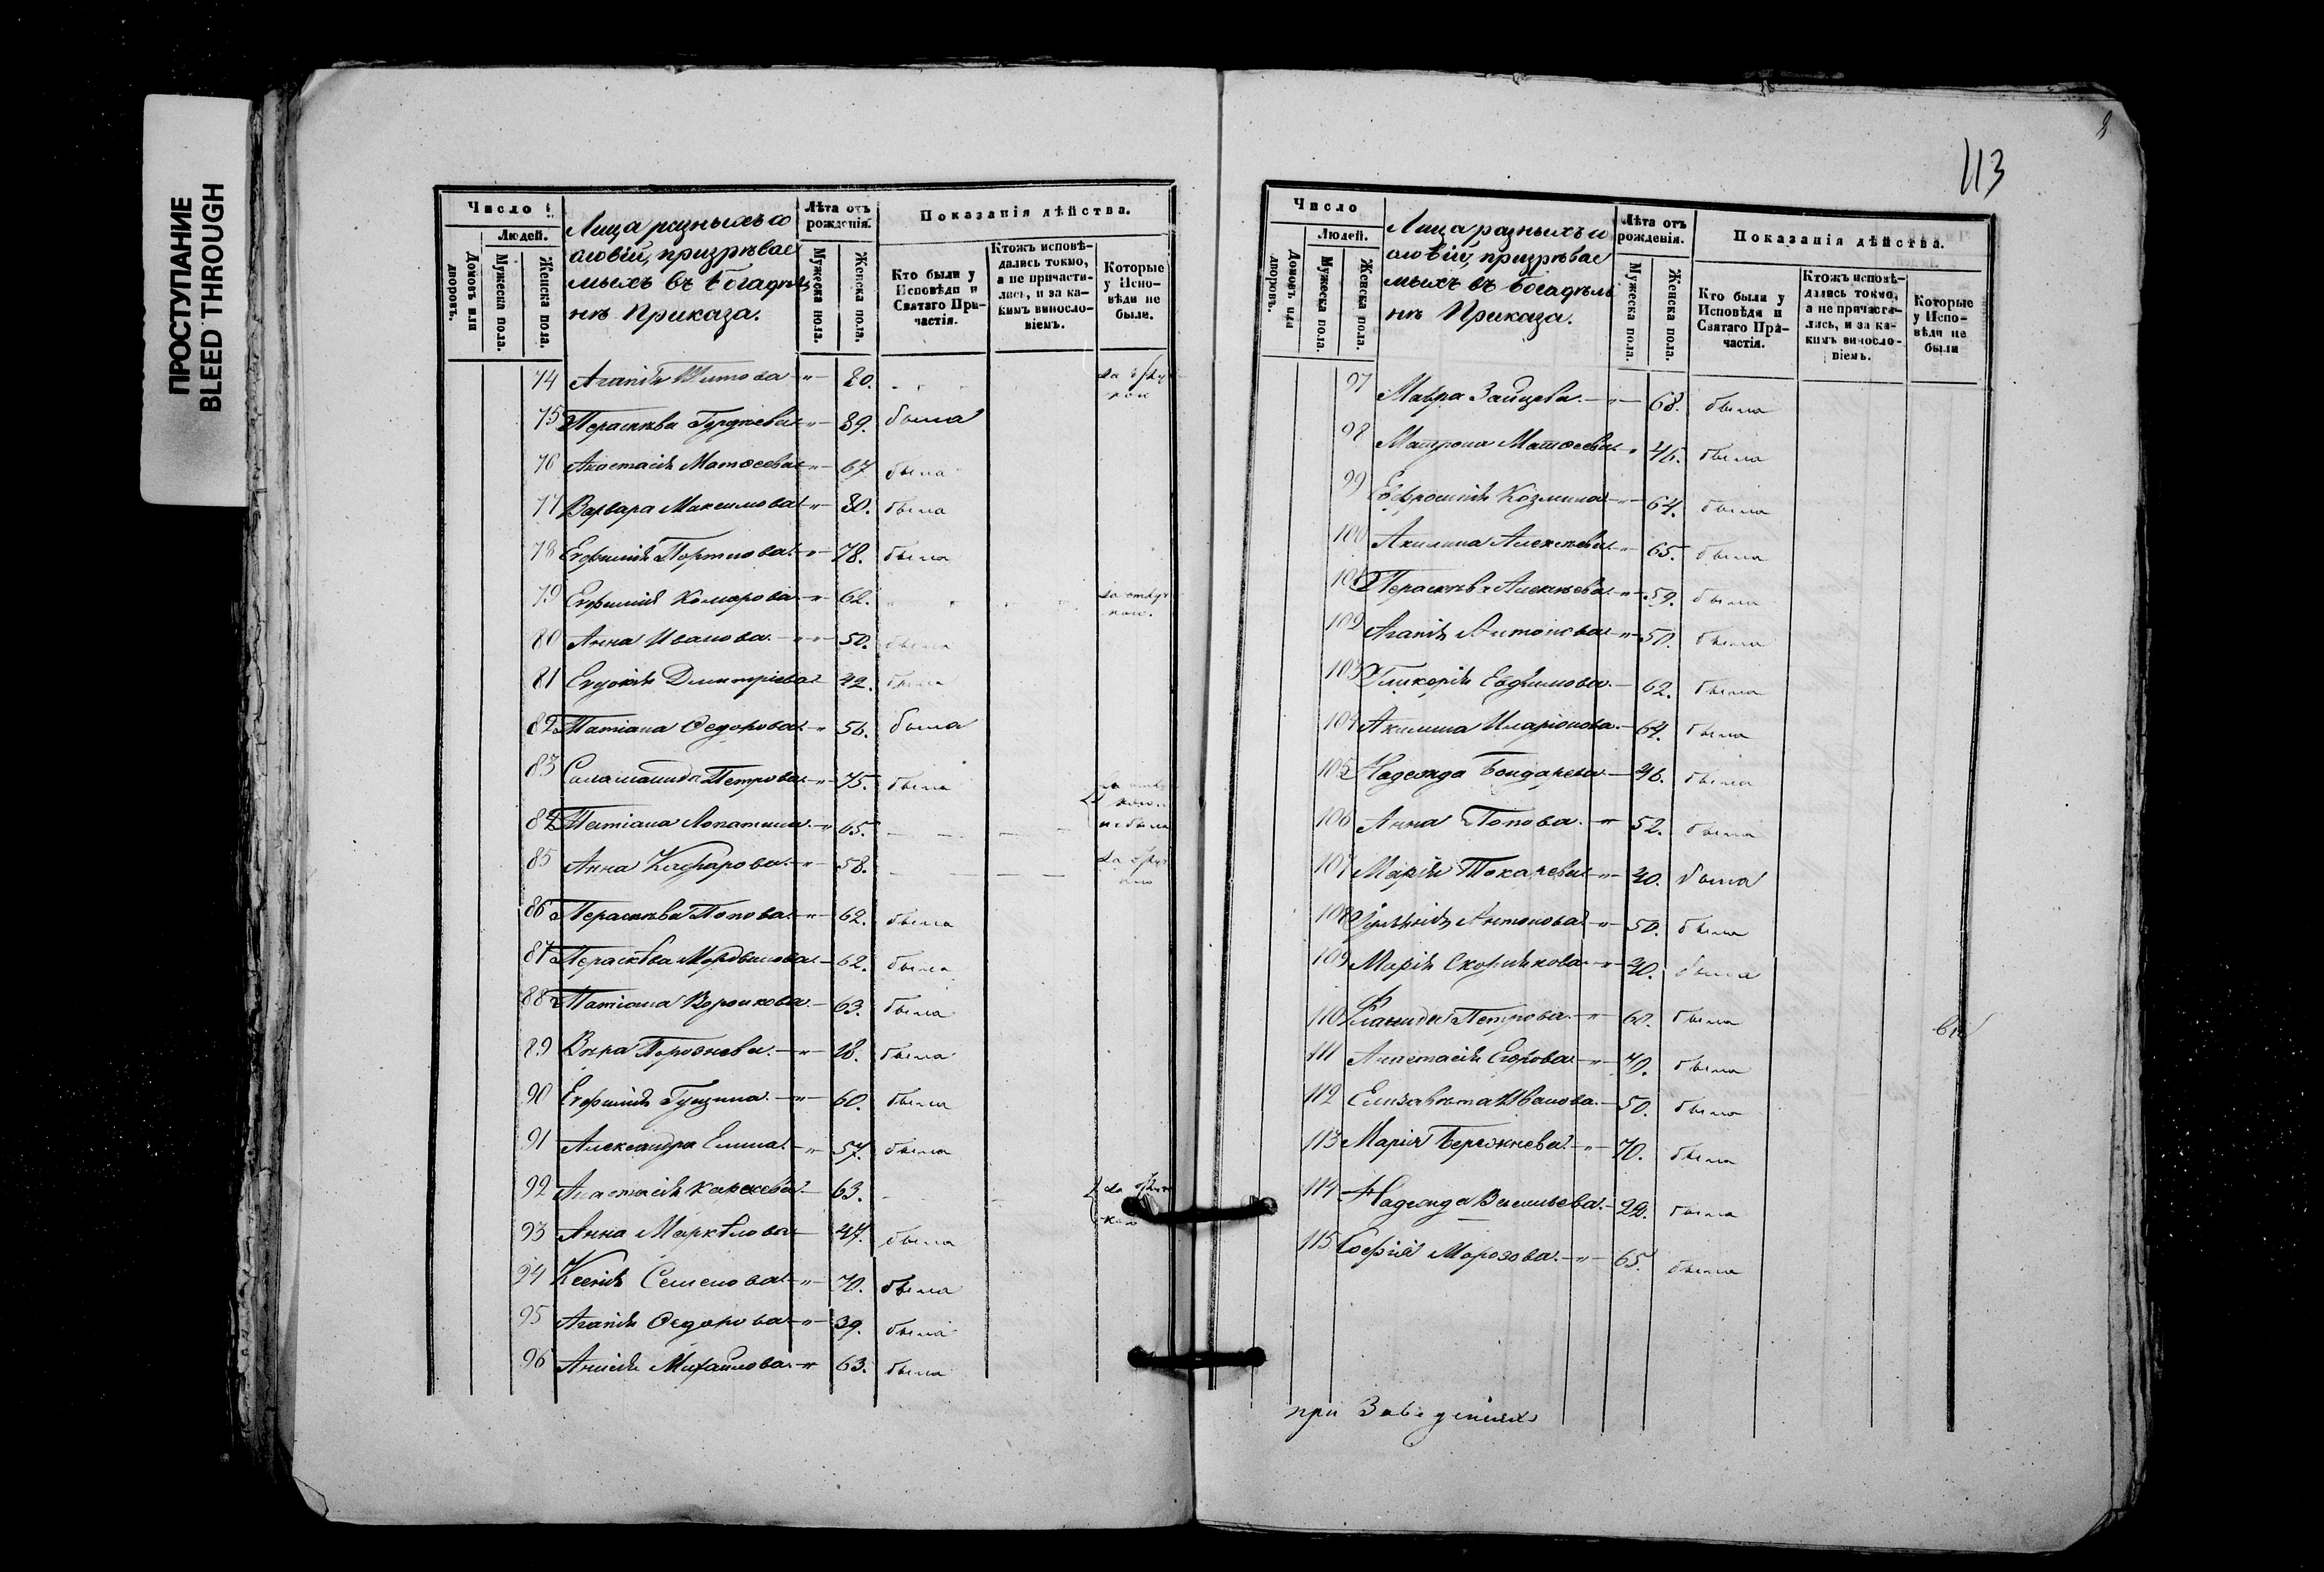 ПРОСТУПАНИЕ
BLEED THROUGH
Число
Людей.
Домовъ или дворовъ.
Мужеска пола.
Женска пола.
Лица разныхъ со
словій, призрѣвае
мыхъ въ богадѣль
нѣ Приказа.
Лѣта отъ рожденія.
Мужеска пола.
Женска пола.
Показанія дѣйства.
Кто были у Исповѣди и Святаго При-частія.
Ктожъ исповѣ-дались токмо, а не причасти-лись, и за ка-кимъ виносло-віемъ.
Которые у Испо-вѣди не были.
74 Агапія — " — 80.
75 Параскева — " — 89. была
76 Анастасія Матѳеева — " — 67 была
77 Варвара Максимова — " — 80. была
78 Евфимія Портнова — " — 78. была
79 Евфимія Комарова — " — 62. за отлуч кою.
80 Анна Иванова — " — 50. была
81 Евдокія Димитріева — 42. была
82 Татіана Ѳедорова — " 56. была
83 Саламанида Петрова — " 75. была
84 Татіана Лопатина — " 65. не была
85 Анна — " — 58.
86 Параскева Попова — " — 62. была
87 Параскева Мордвинова — 62. была
88 Татіана Воронкова — 63. была
89 Вѣра — " — 18. была
90 Евфимія Гущина — " — 60. была
91 Александра Елина — " 57. была
92 Анастасія — 63.
93 Анна Маркѣлова — 47. была
94 Ксенія Семенова — " — 70. была
95 Агапія Ѳедорова — " — 39. была
96 Анисія Михайлова — " 63. была
113
Число
Людей.
Домовъ или дворовъ.
Мужеска пола.
Женска пола.
Лица разныхъ со
словій, призрѣвае
мыхъ въ богадѣль
нѣ Приказа.
Лѣта отъ рожденія.
Мужеска пола.
Женска пола.
Показанія дѣйства.
Кто были у Исповѣди и Святаго При-частія.
Ктожъ исповѣ-дались токмо, а не причасти-лись, и за ка-кимъ виносло-віемъ.
Которые у Испо-вѣди не были
97 Мавра Зайцева — " — 68. была
98 Матрона Матѳеева " 46. была
99 Евфросинія Козмина — " — 64. была
100 Акилина Алексѣева — " 65. была
101 Параскева Алексѣева — " — 59. была
102 Агапія Антонова — " — 50. была
103 Гликерія Евфимова — 62. была
104 Акилина Иларіонова — 64. была
105 Надежда Бондарева — 46. была
106 Анна Попова — " 52. была
107 Марія Токарева — " — 40. была
108 Антонова — " — 50. была
109 Марія Скорнякова — " — 40. была
110 Петрова — " была
111 Анастасія Егорова — " — 40. была
112 Елизавета Иванова — 50. была
113 Марія Бережнева — " — 70. была
114 Надежда Васильева — 22. была
115 Софія Морозова — " — 65. была
при Заведеніяхъ